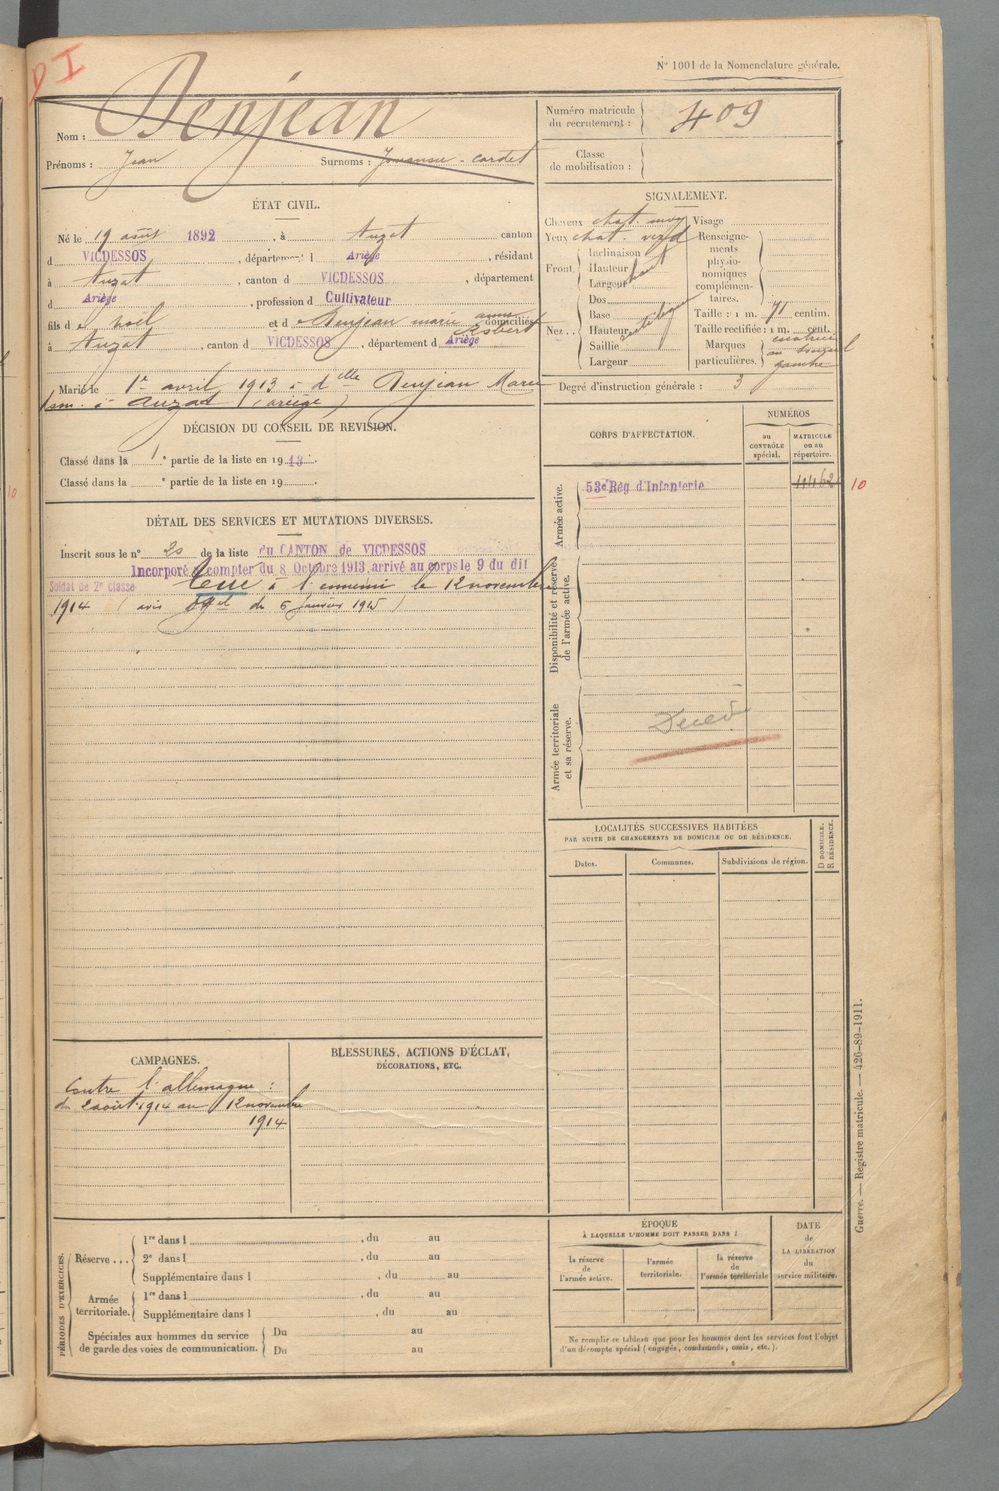 D I
N° 1001 de la Nomenclature générale.
Nom : Denjean
Prénoms : Jean Surnoms : cardet
Numéro matricule du recrutement : 409
Classe de mobilisation :
ÉTAT CIVIL.
Né le 19 août 1892, à Auzat canton
d VICDESSOS, département d Ariège, résidant
à Auzat, canton d VICDESSOS, département
d Ariège, profession d Cultivateur
fils de Noël et de Denjean marie anne domiciliés
à Auzat, canton d VICDESSOS, département d Ariège
Marié le 1er avril 1913 à dlle Denjean Marie
à Auzat (ariège)
DÉCISION DU CONSEIL DE REVISION.
Classé dans la 1e partie de la liste en 1913.
Classé dans la e partie de la liste en 19 .
DÉTAIL DES SERVICES ET MUTATIONS DIVERSES.
Inscrit sous le n° 20 de la liste du CANTON de VICDESSOS
Incorporé à compter du 8 Octobre 1913, arrivé au corps le 9 du dit
Soldat de 2e classe Tué à l'ennemi le 12 novembre
1914 (avis du 6 janvier 1915)
SIGNALEMENT.
Cheveux chat. moy
Yeux chat. verd
Front. Inclinaison
Hauteur haut
Largeur
Nez... Dos
Base
Hauteur
Saillie
Largeur
Visage
Renseignements physionomiques complémentaires.
Taille : 1 m. 71 centim.
Taille rectifiée : 1 m. cent.
Marques particulières. cicatrice
au
gauche
Degré d'instruction générale : 3
CORPS D'AFFECTATION.
NUMÉROS
au CONTRÔLE spécial.
MATRICULE ou au répertoire.
Armée active.
53e Rég d'Infanterie
10
10
Disponibilité et réserve de l'armée active.
Armée territoriale et sa réserve.
Décédé
LOCALITÉS SUCCESSIVES HABITÉES
PAR SUITE DE CHANGEMENTS DE DOMICILE OU DE RÉSIDENCE.
Dates.
Communes.
Subdivisions de région.
D DOMICILE.
R RÉSIDENCE.
CAMPAGNES.
Contre l'allemagne :
du 2 août 1914 au 12 novembre
1914
BLESSURES, ACTIONS D'ÉCLAT,
DÉCORATIONS, ETC.
PÉRIODES D'EXERCICES.
Réserve...
1re dans l , du au
2e dans l , du au
Supplémentaire dans l , du au
Armée territoriale.
1re dans l , du au
Supplémentaire dans l , du au
Spéciales aux hommes du service de garde des voies de communication.
Du au
Du au
ÉPOQUE
À LAQUELLE L'HOMME DOIT PASSER DANS :
la réserve de l'armée active.
l'armée territoriale.
la réserve de l'armée territoriale
DATE de LA LIBÉRATION du service militaire.
Ne remplir ce tableau que pour les hommes dont les services font l'objet
d'un décompte spécial (engagés, condamnés, omis, etc.).
Guerre. — Registre matricule. — 426-89-1911.